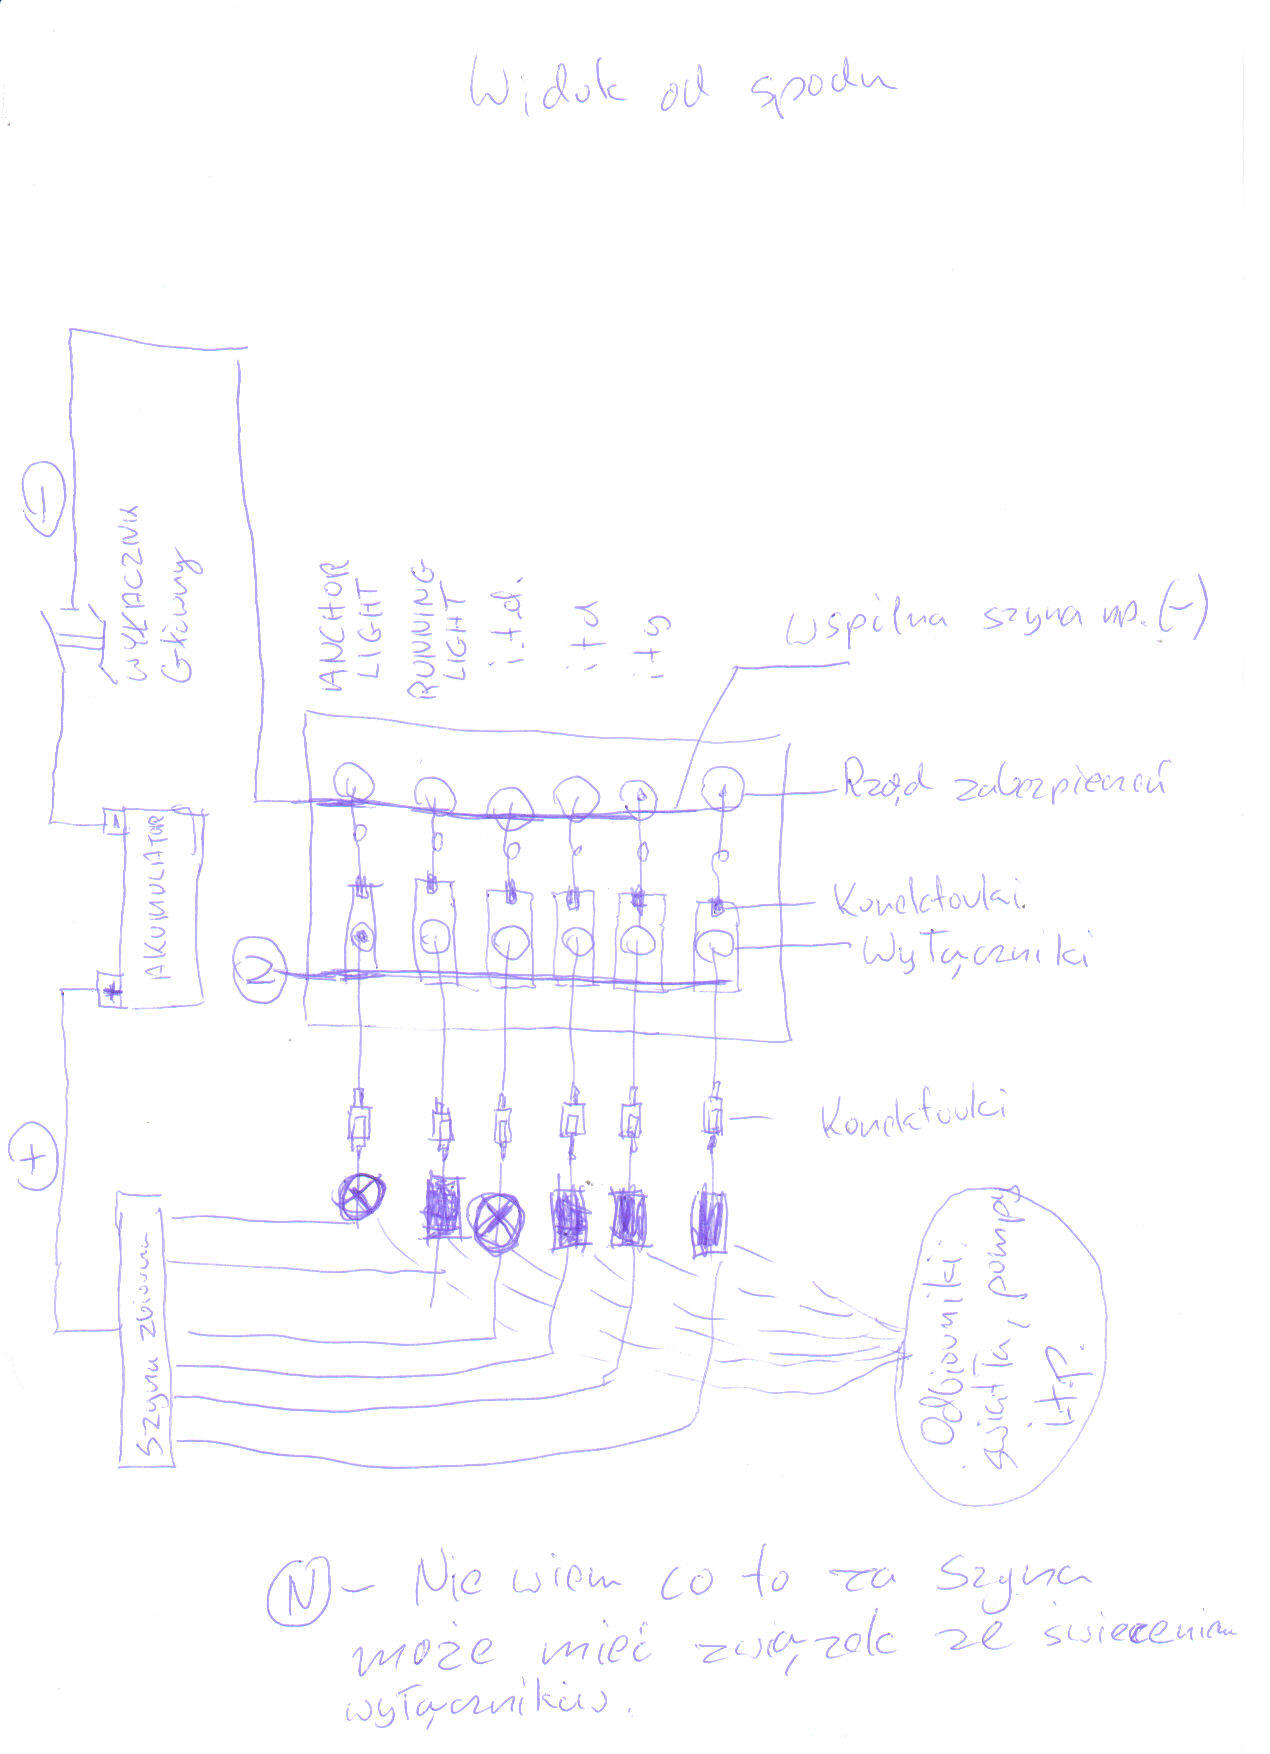 Widok od spodu
-
WYŁĄCZNIK
Główny
ANCHOR
LIGHT
RUNNING
LIGHT
i.t.d.
itd
itd
wspólna szyna np. (-)
Rząd zabezpieczeń
Konektorki
Wyłączniki
-
AKUMULATOR
+
N
+
Konektorki
Szyna zbiorcza
Odbiorniki:
światła, pompy
i.t.p.
N - Nie wiem co to za szyna
może mieć związek ze świeceniem
wyłączników.